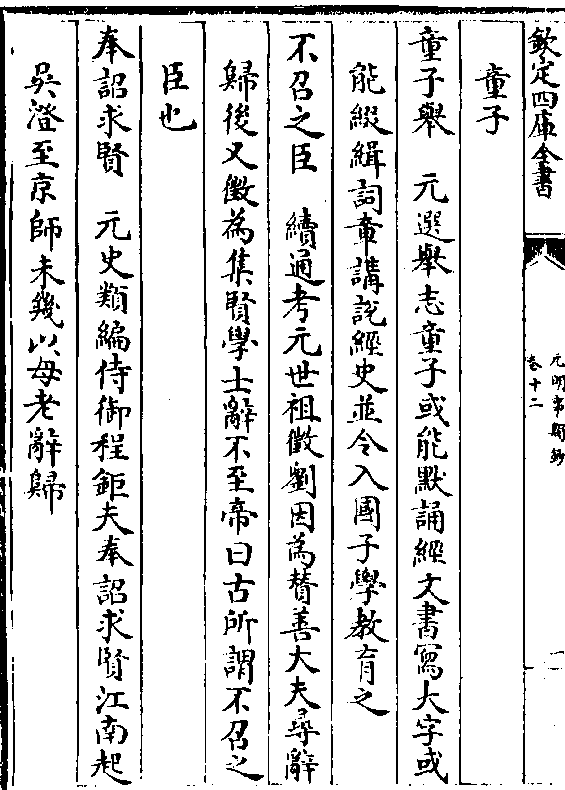 欽定四庫全書
元明事類鈔
卷十二
一
童子
童子舉　元選舉志童子或能默誦經文書寫大字或
能綴緝詞章講說經史並令入國子學教育之
不召之臣　續通考元世祖徵劉因為賛善大夫尋辭
歸後又徵為集賢學士辭不至帝曰古所謂不召之
臣也
奉詔求賢　元史類編侍御程鉅夫奉詔求賢江南起
吳澄至京師未幾以母老辭歸